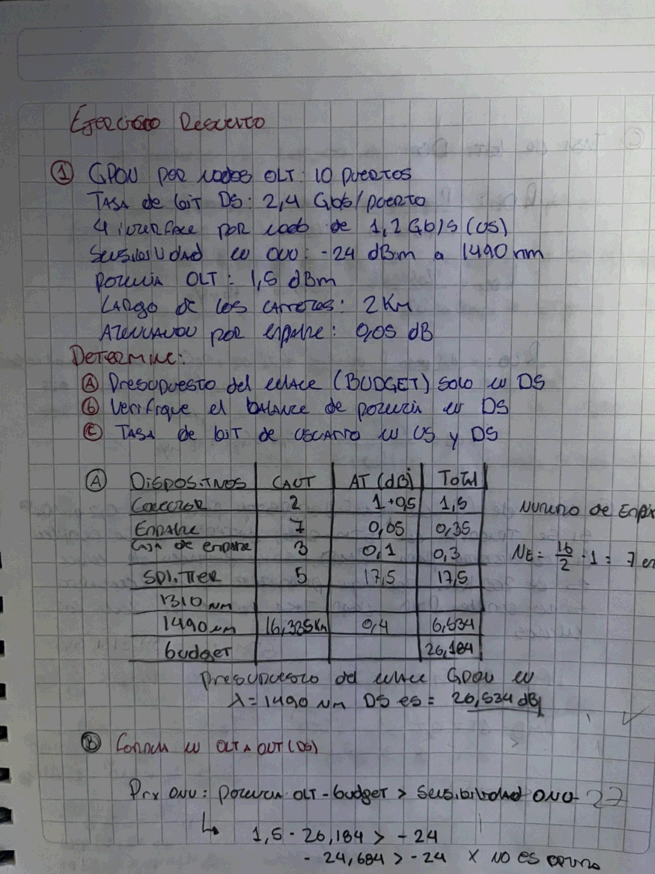 Ejercicio Resuelto
① GPON por nodos OLT: 10 puertos
Tasa de bit DS: 2,4 Gbs/puerto
4 interface por nodo de 1,2 Gb/s (US)
Sensibilidad en ONU: -24 dBm a 1490 nm
Potencia OLT: 1,5 dBm
Largo de los carretes: 2 Km
Atenuacion por empalme: 0,05 dB
Determine:
Ⓐ Presupuesto del enlace (BUDGET) solo en DS
Ⓑ Verifique el balance de potencia en DS
Ⓒ Tasa de bit de usuario en US y DS
Ⓐ Dispositivos CANT AT (dB) Total
Conector 2 1+0,5 1,5
Empalme 7 0,05 0,35 Numero de
Caja de empalme 3 0,1 0,3 NE = 16/2 - 1 = 7
Splitter 5 17,5 17,5
1310 nm
1490 nm 16,335Km 0,4 6,534
budget 26,184
Presupuesto del enlace GPON en
λ = 1490 nm DS es = 26,534 dB
Ⓑ en OLT A (DS)
Prx ONU: Potencia OLT - budget > Sensibilidad ONU - 27
↳ 1,5 - 26,184 > -24
- 24,684 > -24 x NO ES